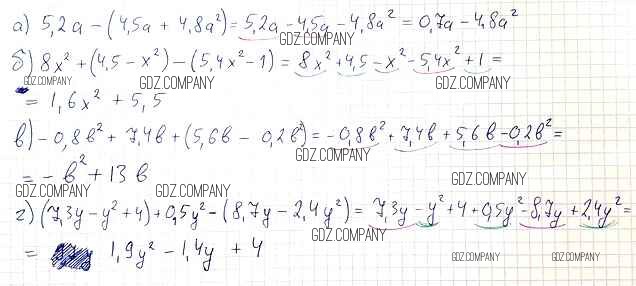 а) 5,2a - (4,5a + 4,8a²) = 5,2a - 4,5a - 4,8a² = 0,7a - 4,8a²
GDZ.COMPANY
б) 8x² + (4,5 - x²) - (5,4x² - 1) = 8x² + 4,5 - x² - 5,4x² + 1 =
GDZ.COMPANY GDZ.COMPANY GDZ.COMPANY
= 1,6x² + 5,5
в) - 0,8b² + 7,4b + (5,6b - 0,2b²) = - 0,8b² + 7,4b + 5,6b - 0,2b² =
GDZ.COMPANY
= - b² + 13b
GDZ.COMPANY
GDZ.COMPANY GDZ.COMPANY
г) (7,3y - y² + 4) + 0,5y² - (8,7y - 2,4y²) = 7,3y - y² + 4 + 0,5y² - 8,7y + 2,4y² =
GDZ.COMPANY
= 1,9y² - 1,4y + 4
GDZ.COMPANY GDZ.COMPANY